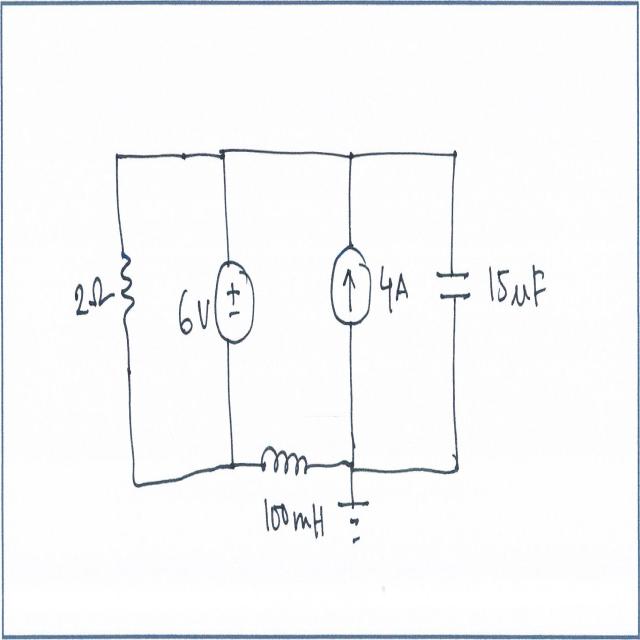 2Ω
6V
±
4A
15μF
100mH